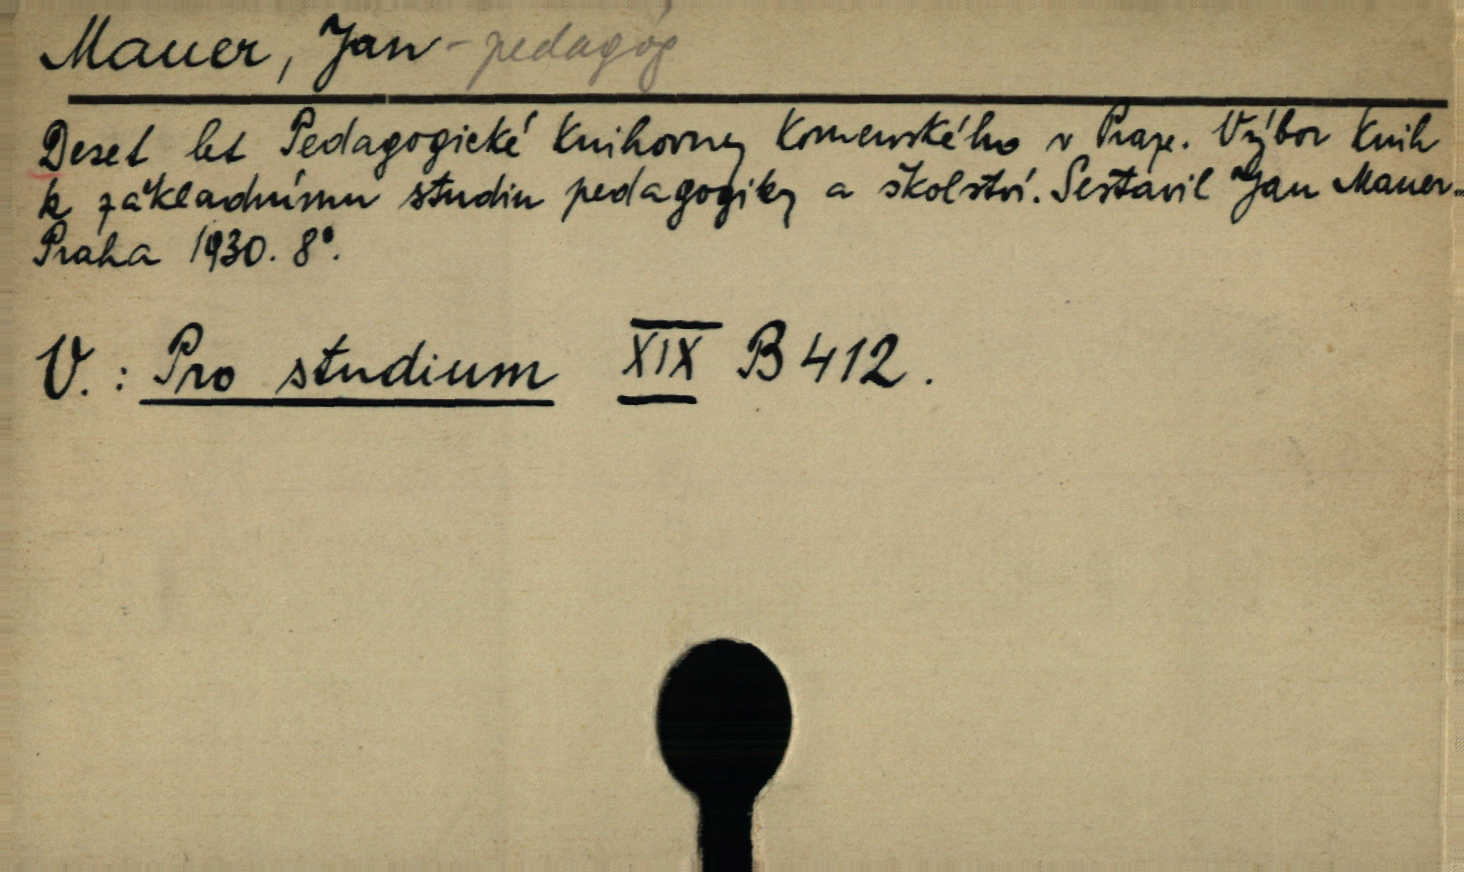 Mauer, Jan - pedagog
Deset let Pedagogické knihovny Komenského v Praze. Výbor knih
k základnímu studiu pedagogiky a školství. Sestavil Jan Mauer.
Praha 1930. 8°.
V.: Pro studium XIX B 412.